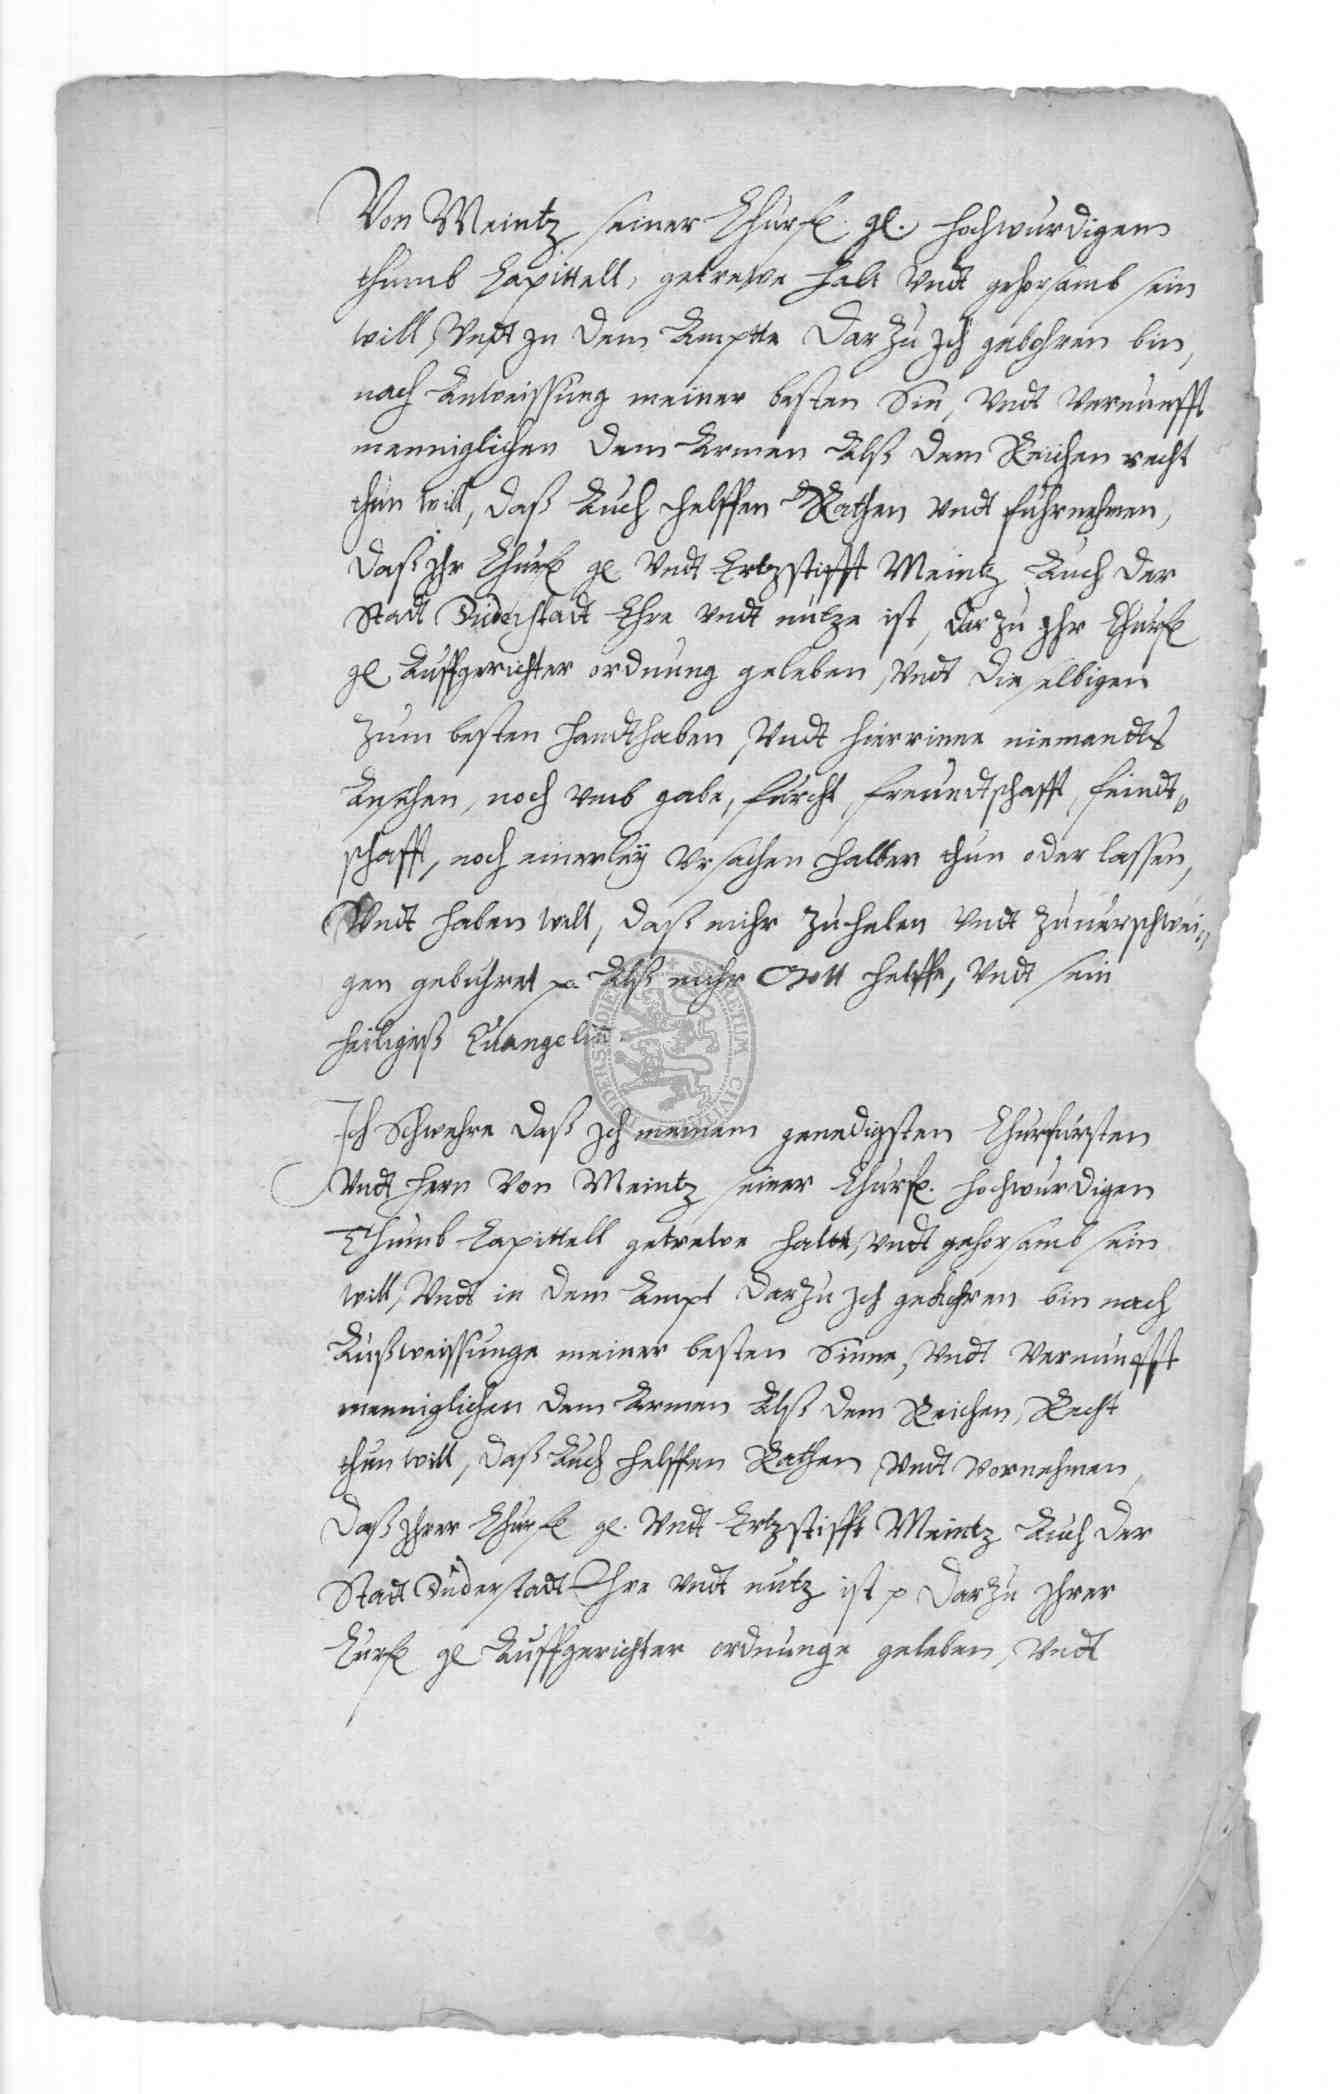 Von Meintz seiner Churf. gl. hochwürdigen
thumb Capittell, getrewe halt vndt gehorsamb sein
will, Vndt zu dem Ampte dar zu Jch gekohren bin,
nach Anweissung meiner besten Sin, Vndt Vernunfft
menniglichen dem Armen Alß dem Reichen recht
thun will, daß Auch helffen Rathen vndt fuhrnehmen,
Daß Jhr Churf gl Vndt Ertzstifft Meintz Auch der
Stadt Duderstadt Ehre vndt nutze ist, Dar zu Jhr Churf
gl Auffgerichter ordnung geleben, Vndt die selbigen
zum besten handthaben, Vndt hierrinne niemandts
Ansehen, noch vmb gabe, furcht, freundtschafft, feindt„
schafft, noch einerley vrsachen halben thun oder lassen,
Vndt haben will, daß mihr zu helen vndt zuuerschwei„
gen gebuhret p. Alß mihr Gott helffe, Vndt sein
heiligeß Euangelium
Ich Schwehre daß Jch meinem genedigsten Churfürsten
Vndt hern Von Meintz seiner Churf. hochwürdigen
Thumb Capittell getrewe halte, vndt gehorsamb sein
will, Vndt in dem Ampt darzu Jch gekohren bin nach
Außweissunge meiner besten Sinne, Vndt Vernunfft
menniglichen dem Armen Alß dem Reichen, Recht
thun will, daß Auch helffen Rathen Vndt vornehmen,
Daß Jhrer Churf gl. Vndt Ertzstifft Meintz Auch der
Stadt Duderstadt Ehre vndt nutz ist p Darzu Jhrer
Curf gl Auffgerichter ordnunge geleben, Vndt